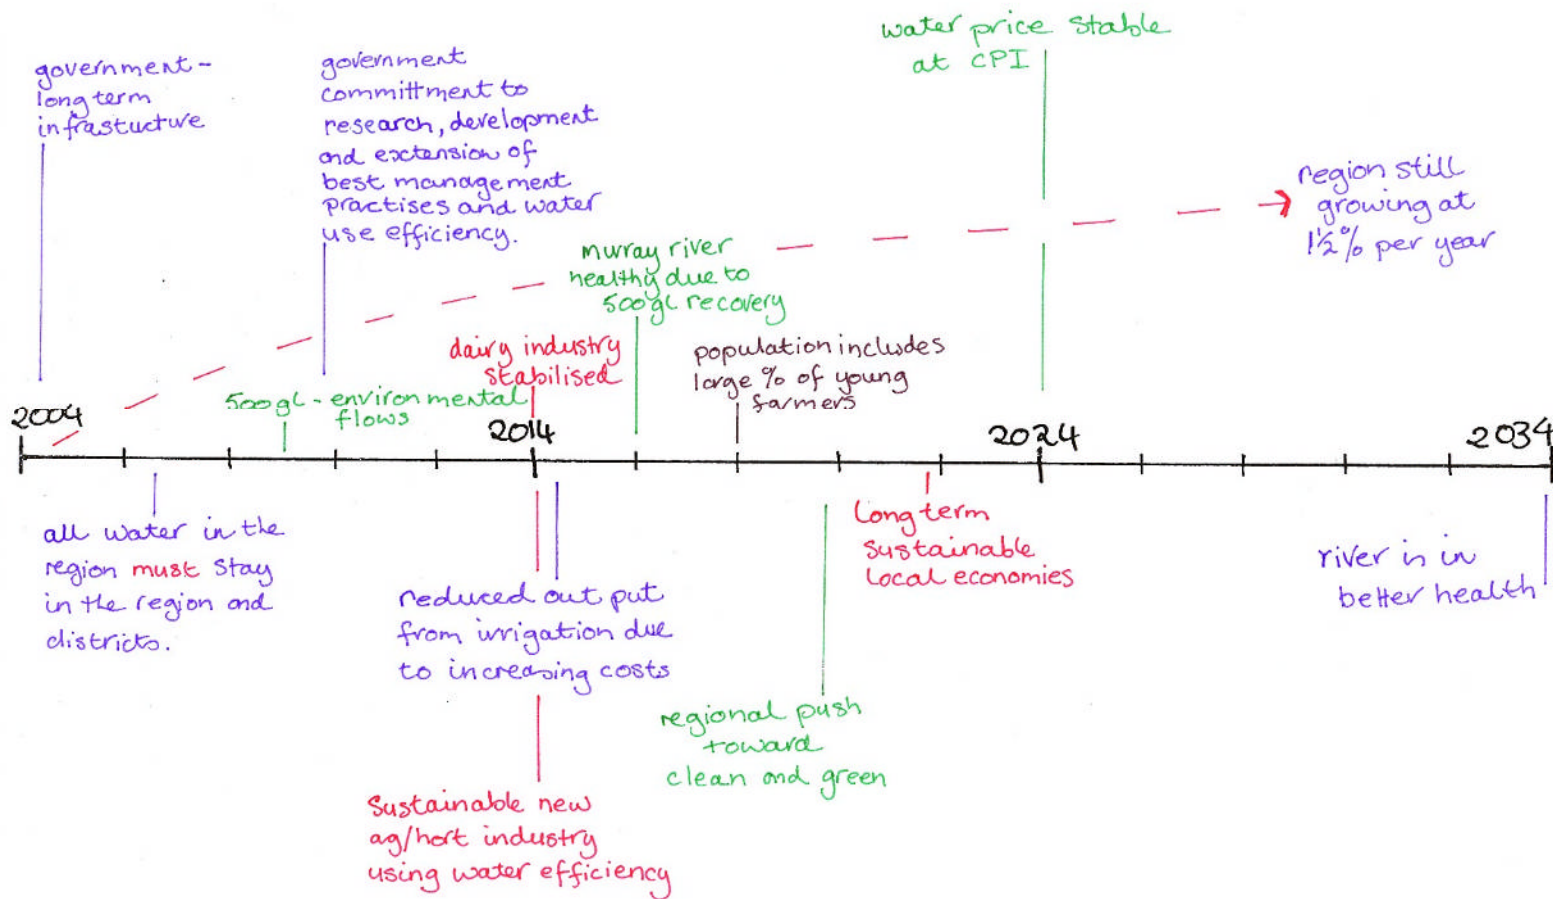 government-
long term
infrastucture
government
committment to
research, development
and exctension of
best management
practises and water
use efficiency.
water price stable
at CPI
region still
growing at
1½% per year
murray river
healthy due to
500gL recovery
dairy industry
stabilised
population includes
large % of young
farmers
500gL - environmental
flows
2004
2014
2024
2034
all water in the
region must stay
in the region and
districts.
reduced out put
from irrigation due
to increasing costs
Long term
sustainable
local economies
river is in
better health
regional push
toward
clean and green
Sustainable new
ag/hort industry
using water efficiency